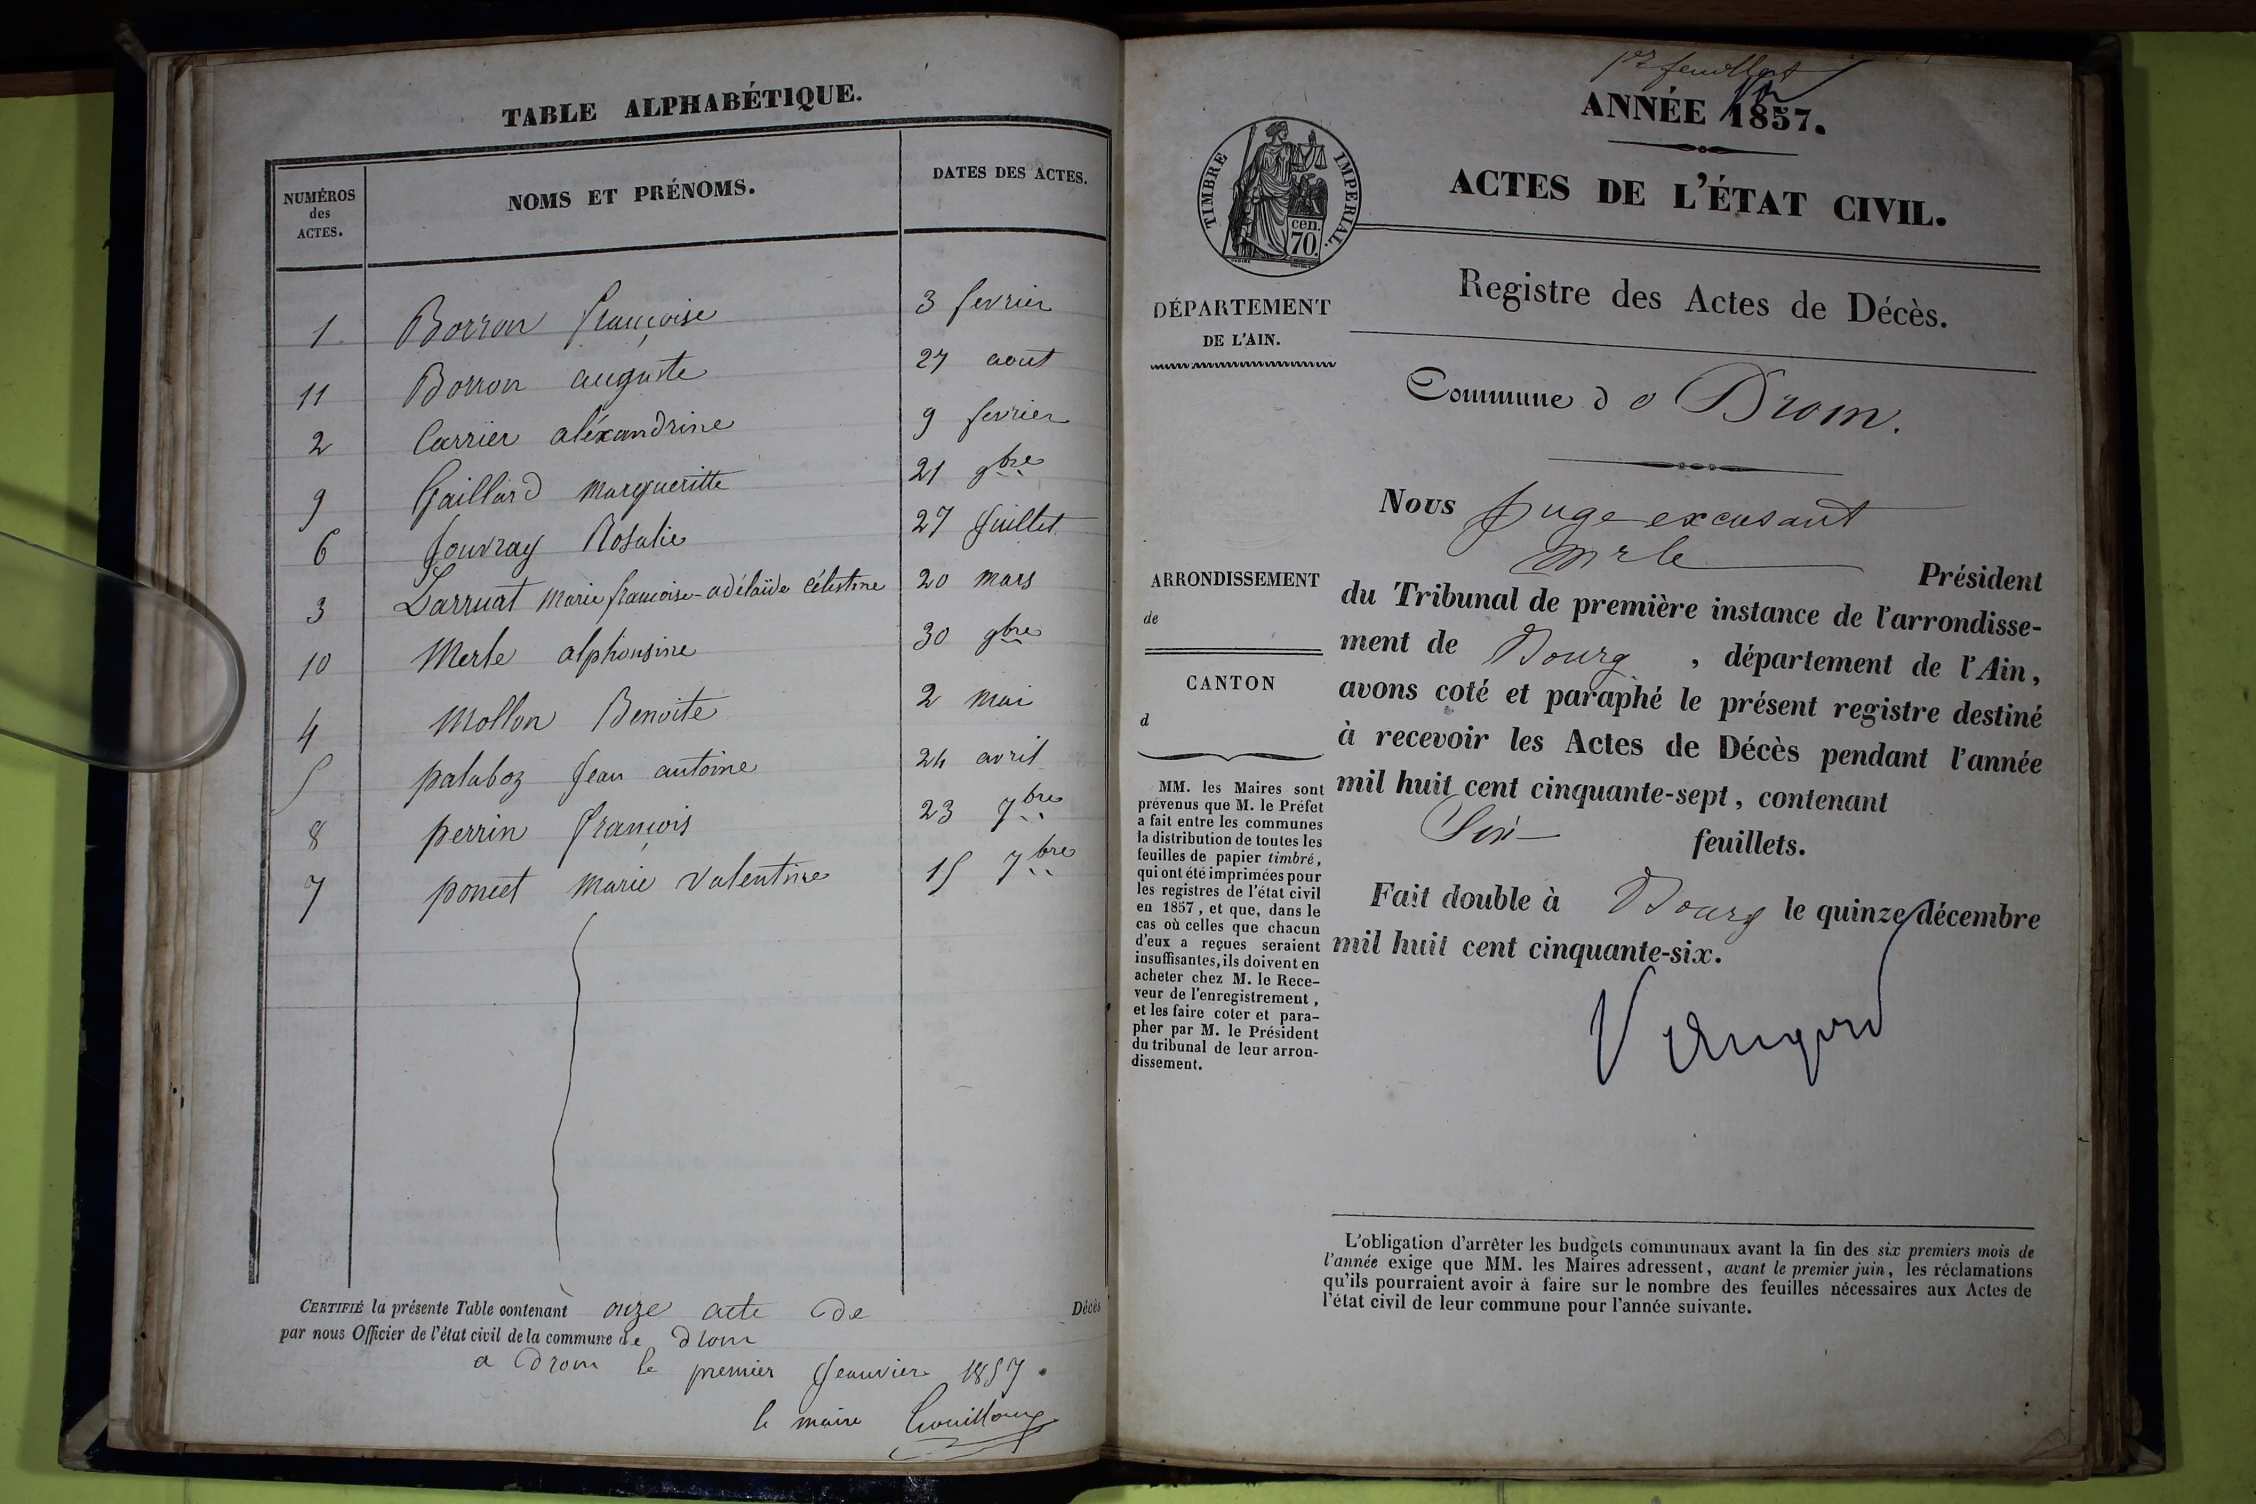 TABLE ALPHABÉTIQUE.
NUMÉROS
des
ACTES.
NOMS ET PRÉNOMS.
DATES DES ACTES.
1 Borron françoise 3 fevrier
11 Borron auguste 27 aout
2 Carrier aléxandrine 9 fevrier
9 Gaillard margueritte 21 9bre
6 Jouvray Rosalie 27 Juillet
3 Larruat marie françoise-adélaïde célestine 20 mars
10 Merle alphonsine 30 9bre
4 Mollon Benoite 2 mai
5 palaboz Jean antoine 24 avril
8 perrin françois 23 7bre
7 poncet marie Valentine 15 7bre
CERTIFIÉ la présente Table contenant onze acte de Décès
par nous Officier de l'état civil de la commune de drom
a Drom le premier Jeanvier 1857.
le maire
1er feuillet
ANNÉE 1857.
TIMBRE IMPERIAL.
cen.
70.
ACTES DE L'ÉTAT CIVIL.
Registre des Actes de Décès.
DÉPARTEMENT
DE L'AIN.
Commune d e Drom.
ARRONDISSEMENT
de
CANTON
d
MM. les Maires sont
prévenus que M. le Préfet
a fait entre les communes
la distribution de toutes les
feuilles de papier timbré,
qui ont été imprimées pour
les registres de l'état civil
en 1857, et que, dans le
cas où celles que chacun
d'eux a reçues seraient
insuffisantes, ils doivent en
acheter chez M. le Rece-
veur de l'enregistrement,
et les faire coter et para-
pher par M. le Président
du tribunal de leur arron-
dissement.
Nous Juge excusant
Mr le Président
du Tribunal de première instance de l'arrondisse-
ment de Bourg, département de l'Ain,
avons coté et paraphé le présent registre destiné
à recevoir les Actes de Décès pendant l'année
mil huit cent cinquante-sept, contenant
Six feuillets.
Fait double à Bourg le quinze décembre
mil huit cent cinquante-six.
L'obligation d'arrêter les budgets communaux avant la fin des six premiers mois de
l'année exige que MM. les Maires adressent, avant le premier juin, les réclamations
qu'ils pourraient avoir à faire sur le nombre des feuilles nécessaires aux Actes de
l'état civil de leur commune pour l'année suivante.